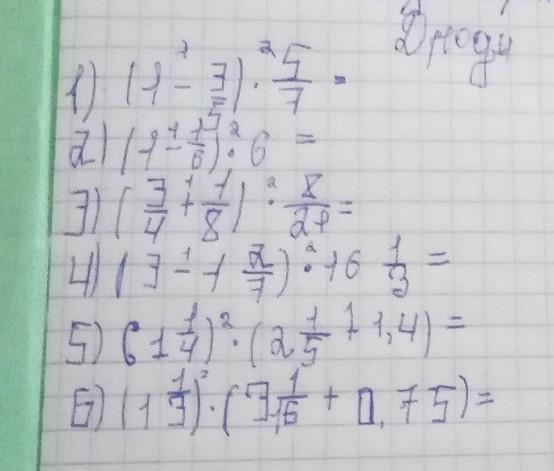 Дроди
1) (1 - 3/5) · 5/7 =
2) (1 - 1/6) · 6 =
3) (3/4 + 1/8) · 8/21 =
4) (3 - 1 2/7) · 16 1/3 =
5) (1 1/4)² · (2 1/5 + 1,4) =
6) (1 1/3)² · (3 1/6 + 0,75) =